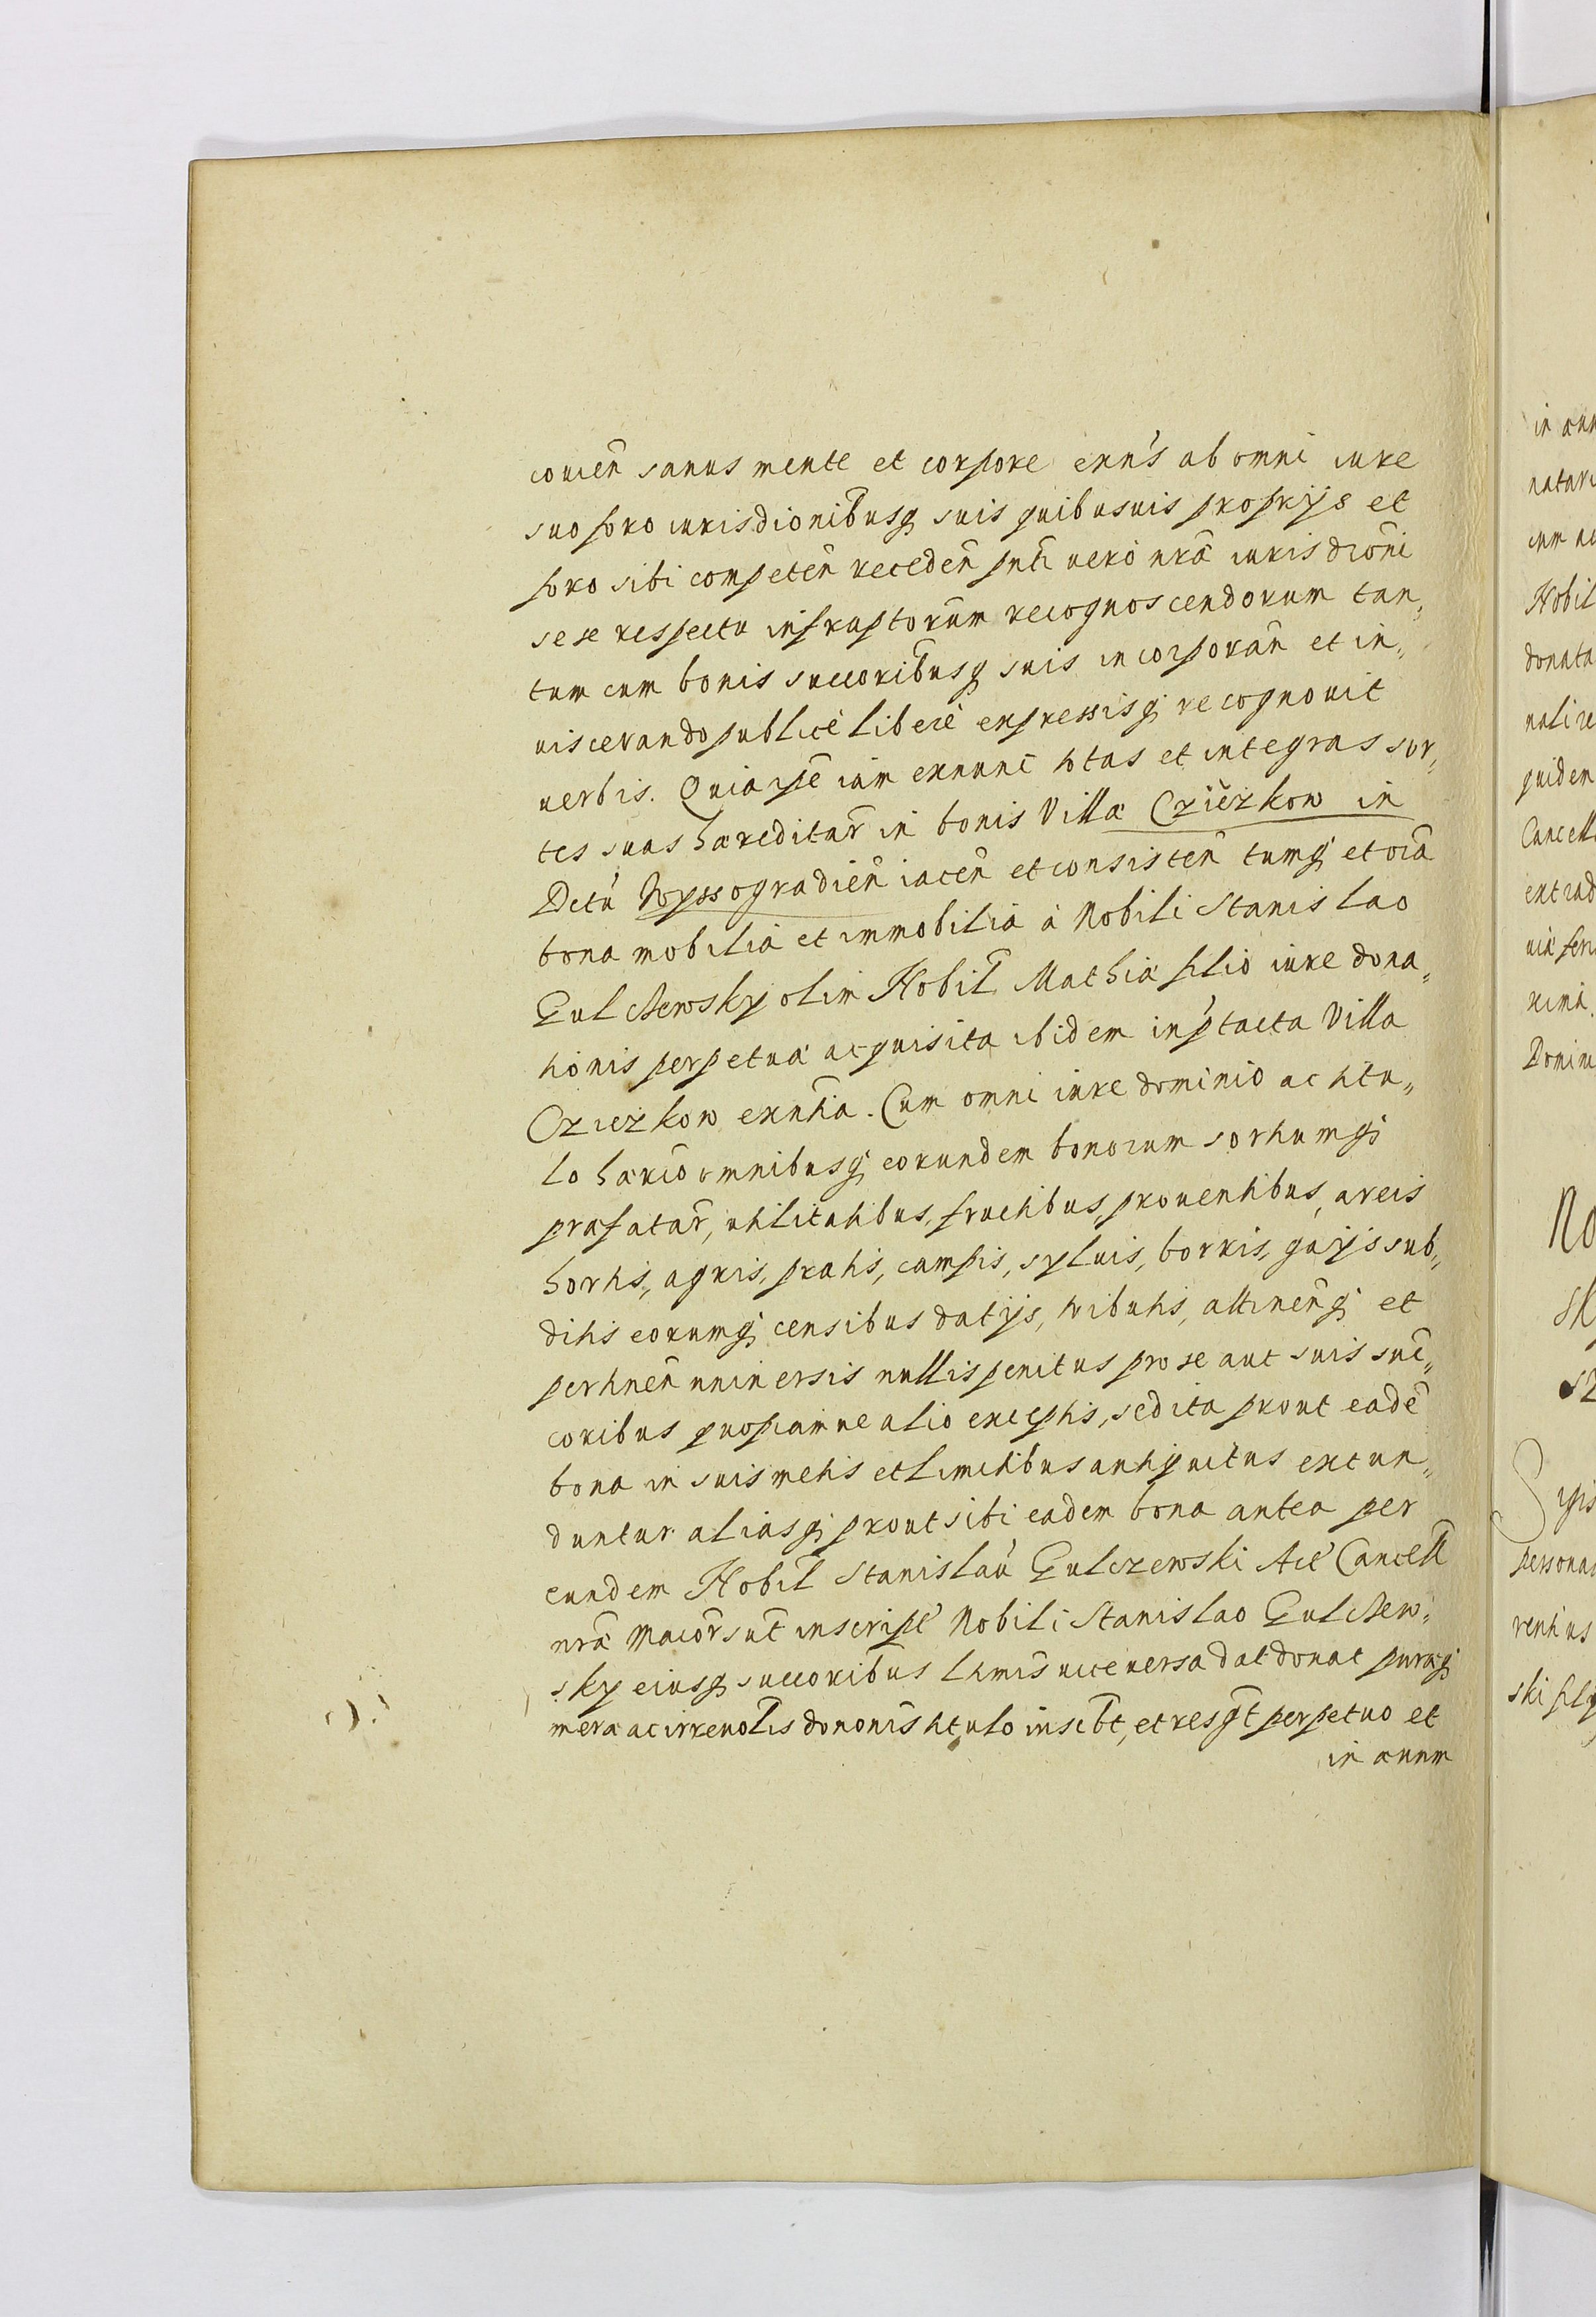 coueñ sanus mente et corpore exñs ab omni iure
suo foro iurisdionibusq suis quibusuis proprijs et
foro sibi competeñ recedeñ pñti uero nrã iurisdioñi
sese respectu infraptorum recognoscendorum tan„
tum cum bonis succoribusq suis incorporañ et in„
uiscerando publice libere expressisq recognouit
uerbis. Quia ipse iam exnunc totas et integras sor„
tes suas hæreditar̃ in bonis Villa Cziezkow in
Dctũ Wyssogradieñ iaceñ et consisteñ tumq et oĩa
bona mobilia et immobilia à Nobili Stanislao
Gulchewsky olim Nobil Mathiæ filio iure dona„
tionis perpetuæ acquisita ibidem in ptacta Villa
Cziezkow exñtia. Cum omni iure dominio ac titu„
lo hærio omnibusq eorundem bonorum sortiumq
præfatar̃, utilitatibus, fructibus, prouentibus, areis
hortis, agris, pratis, campis, syluis, borris, gaijs sub„
ditis eorumq censibus datijs, tributis, attineñq et
pertineñ uniuersis nullis penitus pro se aut suis suc̃„
coribus quopiamue alio exceptis, sed ita prout eadẽ
bona in suis metis et limitibus antiquitus extun„
duntur aliasq prout sibi eadem bona antea per
eundem Nobil Stanislaũ Gulczewski Actẽ Cancell
nrã Maior̃ sunt inscripẽ Nobili Stanislao Gulchew„
sky eiusq succoribus ltimis uice uersa dat donat puræq
meræ ac irreuolis dononis titulo inscbt, et resgt perpetuo et
in æuum
in æuu
Nobil
donata
quidem
Cancell
Domin
No
sk
sz
persona